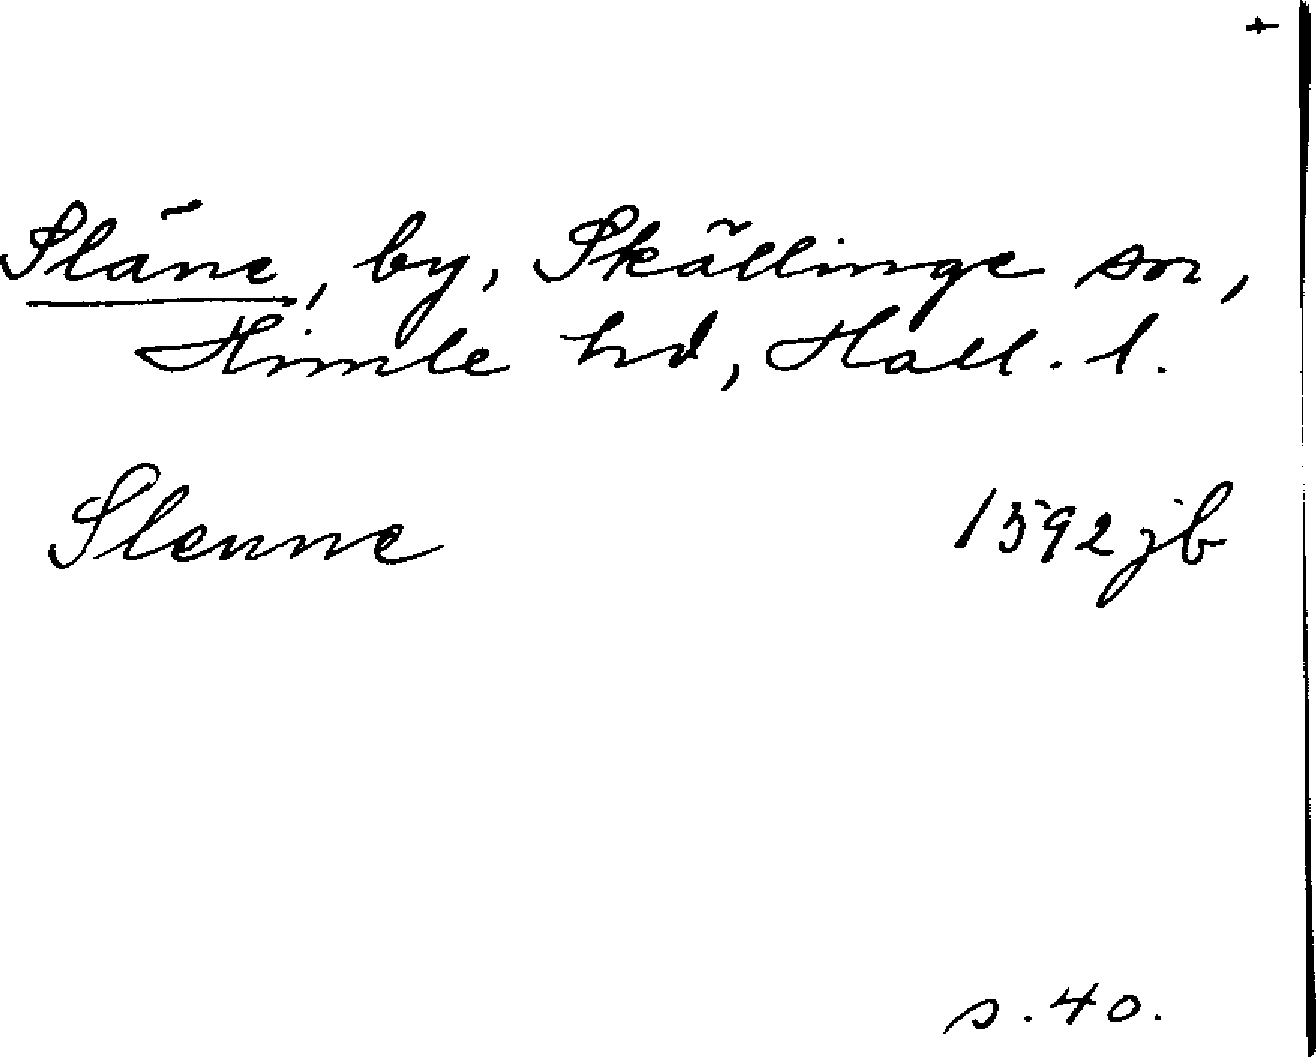 +
Släne, by, Skällinge sn,
Himle hd, Hall. l.
Slenne 1592 jb
s. 40.